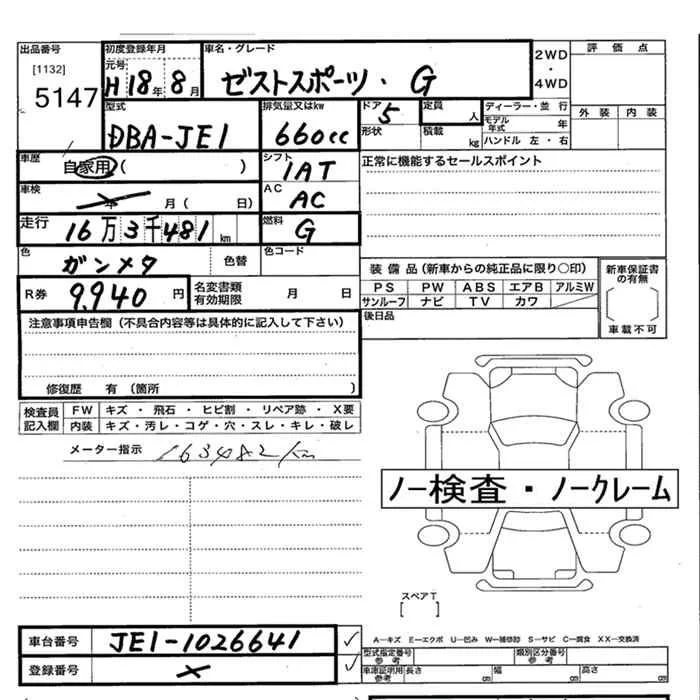 出品番号 初度登録年月 車名・グレード 2WD・4WD 評価点
[1132] 元号
5147 H18年8月 ゼストスポーツ・G
型式 排気量又はkw ドア 定員 ディーラー・並行 外装 内装
DBA-JE1 660cc 5 人 モデル年式 年
形状 積載 kg ハンドル 左・右
車歴 自家用( ) シフト 1AT 正常に機能するセールスポイント
車検 年 月( 日) AC AC
走行 16万3千481km 燃料 G
色 ガンメタ 色替 色コード
装備品(新車からの純正品に限り○印) 新車保証書の有無
R券 9,940円 名変書類有効期限 月 日
PS PW ABS エアB アルミW
サンルーフ ナビ TV カワ 車載不可
注意事項申告欄(不具合内容等は具体的に記入して下さい) 後日品
修復歴 有(箇所 )
検査員記入欄 FW キズ・飛石・ヒビ割・リペア跡・X要
内装 キズ・汚レ・コゲ・穴・スレ・キレ・破レ
メーター指示 163482km
ノー検査・ノークレーム
スペアT
[ ]
車台番号 JE1-1026641 ✓
A―キズ E―エクボ U―凹み W―補修跡 S―サビ C―腐食 XX―交換済
型式指定番号参考 類別区分番号参考
登録番号 × ✓ 車庫証明用参考 長さ cm 幅 cm 高さ cm